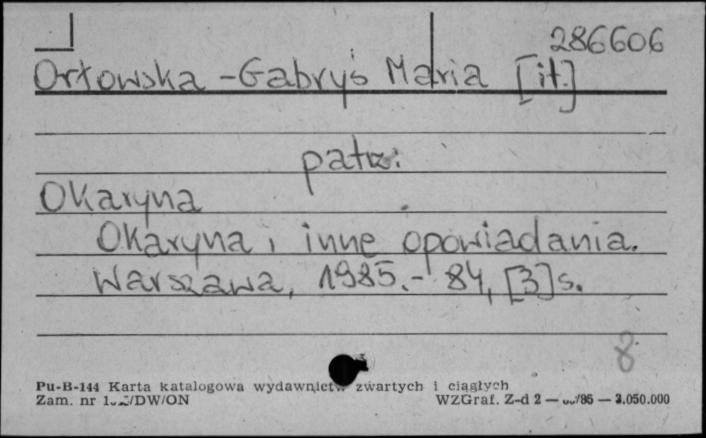 286606
Orłowska-Gabryś Maria [it.]
patrz:
Okaryna
Okaryna i inne opowiadania.
Warszawa, 1985.- 84, [3] s.
8
Pu-B-144 Karta katalogowa wydawnictw zwartych i ciągłych
Zam. nr /DW/ON WZGraf. Z-d 2 — /86 — 3.050.000